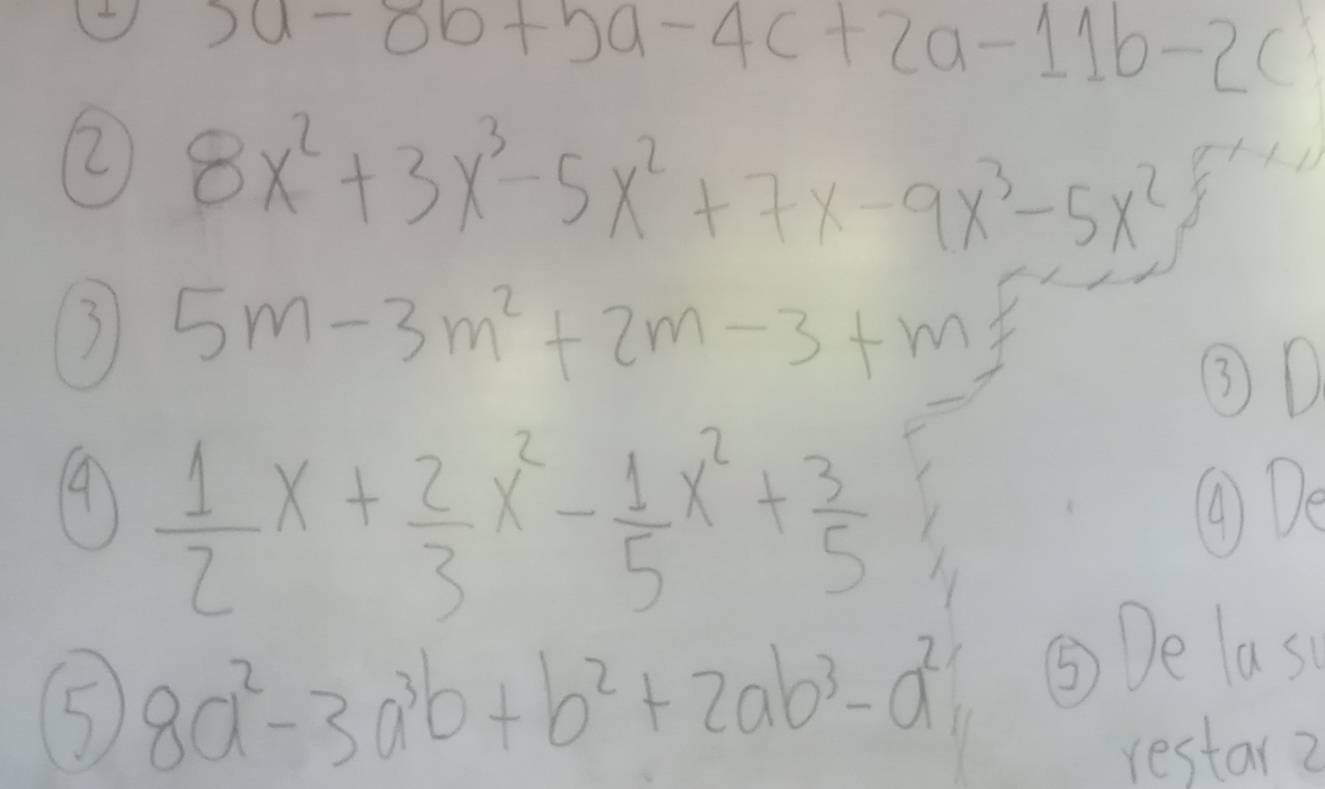 ① 3a - 8b + 5a - 4c + 2a - 11b - 2c
② 8x² + 3x³ - 5x² + 7x - 9x³ - 5x²
③ 5m - 3m² + 2m - 3 + m
④ 1/2 x + 2/3 x² - 1/5 x² + 3/5
⑤ 8a² - 3a³b + b² + 2ab³ - a²
③ D
④ De
⑤ De la su
restar 2